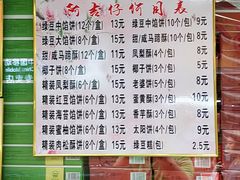 阿 仔 价 目 表
绿豆中馅饼(12个/盒) 13元
绿豆大馅饼(8个/盒) 15元
甜/咸马蹄酥(12个/盒) 11元
椰子饼(8个/盒) 15元
精装凤梨酥(6个/盒) 15元
精装红豆馅饼(6个/盒) 15元
精装海苔馅饼(6个/盒) 15元
精装蜜柚馅饼(6个/盒) 15元
精装肉松酥饼(6个/盒) 15元
绿豆中馅饼(10个/包) 9元
甜/咸马蹄酥(10个/包) 8元
凤梨酥(4个/包) 9元
椰子饼(6个/包) 9元
老婆饼(5个/包) 9元
蛋黄酥(5个/包) 10元
香芋酥(5个/包) 9元
太阳饼(4个/包) 9元
绿豆糕(包) 2.5元